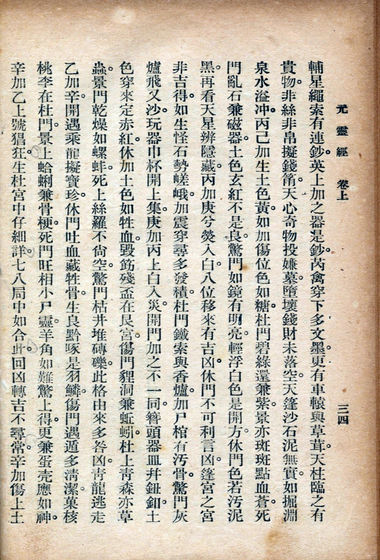 元靈經 卷上
三四
輔星繩索有連鈔。英上加之器是鈔丙禽穿下多文墨更有車轅與草茸。天柱臨之有
貴物。非絲非帛擬錢箭天心奇物投嫌墓。墮壞錢財未落空天篷沙石泥無實如掘淵
泉水溢沖丙己加生土色黃。如加傷位色如糖杜門碧綠還兼紫景亦斑斑點血蒼死
門亂石兼磁器土色玄紅不是良驚門如鏡有明亮。輕浮白色是開方。休門色若污泥
黑。再看天星辨隱藏丙加庚兮熒入白八位移來有吉凶休門不可利言凶篷宮之宮
非吉得如生怪石勢嵯峨加震穿尋多發積。杜門鐵索與香爐。加戶棺有汚骨驚門灰
爐飛又沙玩器巾杯開上集。庚加丙上白入熒開門加之不一同。簪頭器皿幷鈕釦。土
色穿來定赤紅休加土色如牲血毀筋殘盃在艮宮傷門貍洞兼蚯蚓杜上靑森亦草
蟲。景門乾燥如螺蚌死上絲羅不尙空驚門枯井堆磚礫此格由來多咎凶靑龍逃走
乙加辛開遇乘龍擬寶珍休門吐血藏牲骨生良黔啄是羽鱗傷門遇遁多淸潔菓核
桃李在杜門。景上蛤蜊兼骨梗死門旺相小戶靈羊角如難驚上得更兼蛋壳應如神。
辛加乙上號猖狂生杜宮中仔細詳七八局中如合此。回凶轉吉不尋常辛加傷上土